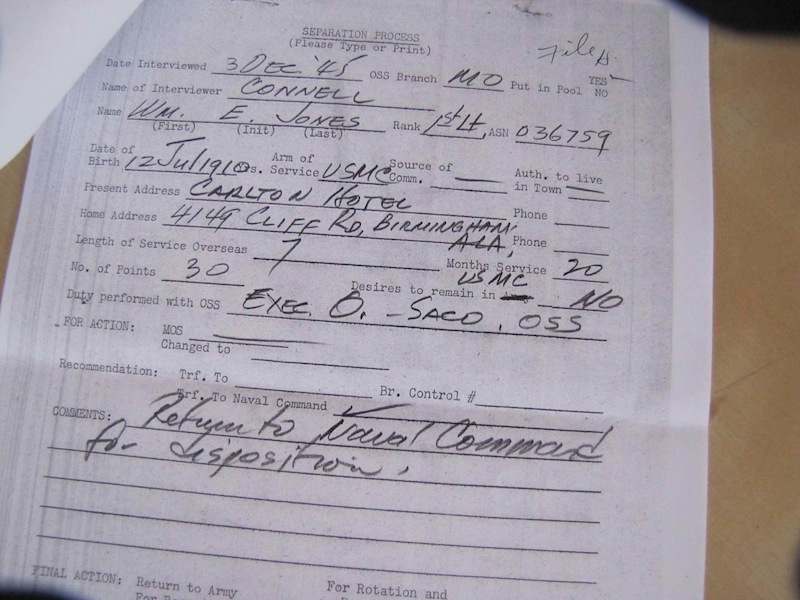 SEPARATION PROCESS
(Please Type or Print)
Files.
Date Interviewed 3 DEC '45 OSS Branch MO Put in Pool YES NO
Name of Interviewer CONNELL
Name WM. E. JONES Rank 1st Lt, ASN 036759
(First) (Init) (Last)
Date of Birth 12 Jul 1910 s. Arm of Service USMC Source of Comm. Auth. to live in Town
Present Address CARLTON HOTEL Phone
Home Address 4149 CLIFF RD, BIRMINGHAM, ALA, Phone
Length of Service Overseas 7 Months Service 20
No. of Points 30 Desires to remain in USMC NO
Duty performed with OSS EXEC. O. - SACO, OSS
FOR ACTION: MOS
Changed to
Recommendation: Trf. To Br. Control #
Trf. To Naval Command ✓
COMMENTS: Return to Naval Command
for disposition.
FINAL ACTION: Return to Army For Rotation and